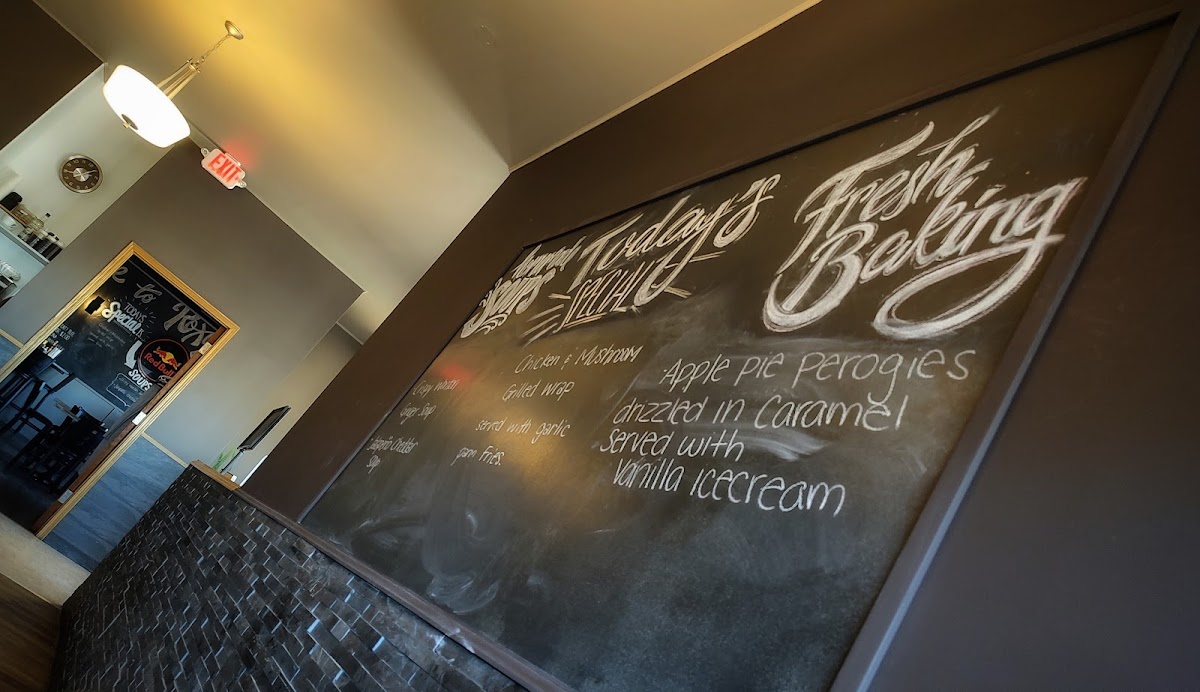 EXIT
to Rox
TODAY'S
Specials
Red Bull
SOUPS
Soups
Crispy Wonton
Ginger Soup
Jalapeño Cheddar
Soup
Today's
SPECIAL
Chicken & Mushroom
Grilled wrap
served with garlic
parm Fries.
Fresh
Baking
Apple pie perogies
drizzled in caramel
served with
vanilla icecream